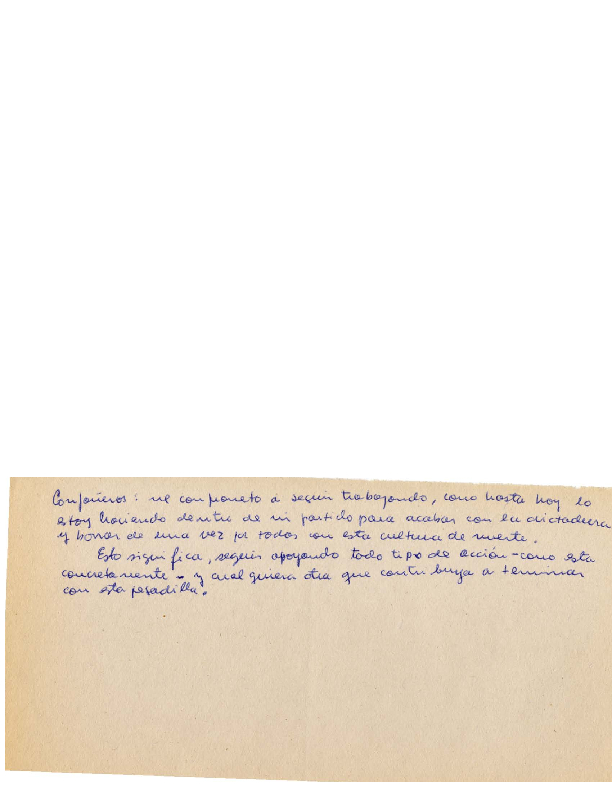 Compañeros: me comprometo a seguir trabajando, como hasta hoy lo
estoy haciendo dentro de mi partido para acabar con la dictadura
y borrar de una vez por todas con esta cultura de muerte.
Esto significa, seguir apoyando todo tipo de acción - como esta
concretamente - y cualquiera otra que contribuya a terminar
con esta pesadilla.